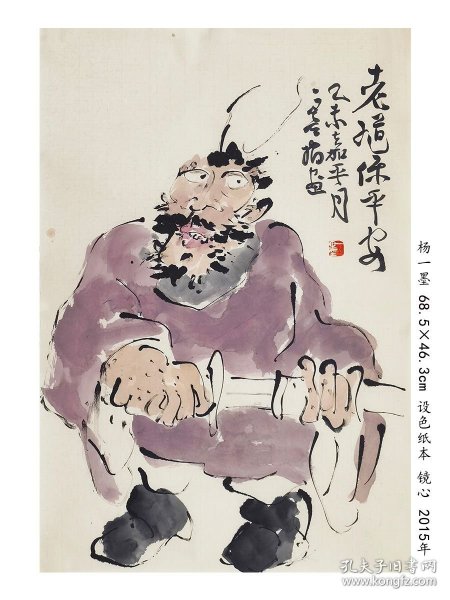 老馗保平安
乙未嘉平月
一墨指画
杨一墨 68.5×46.3cm 设色纸本 镜心 2015年
孔夫子旧书网
www.kongfz.com